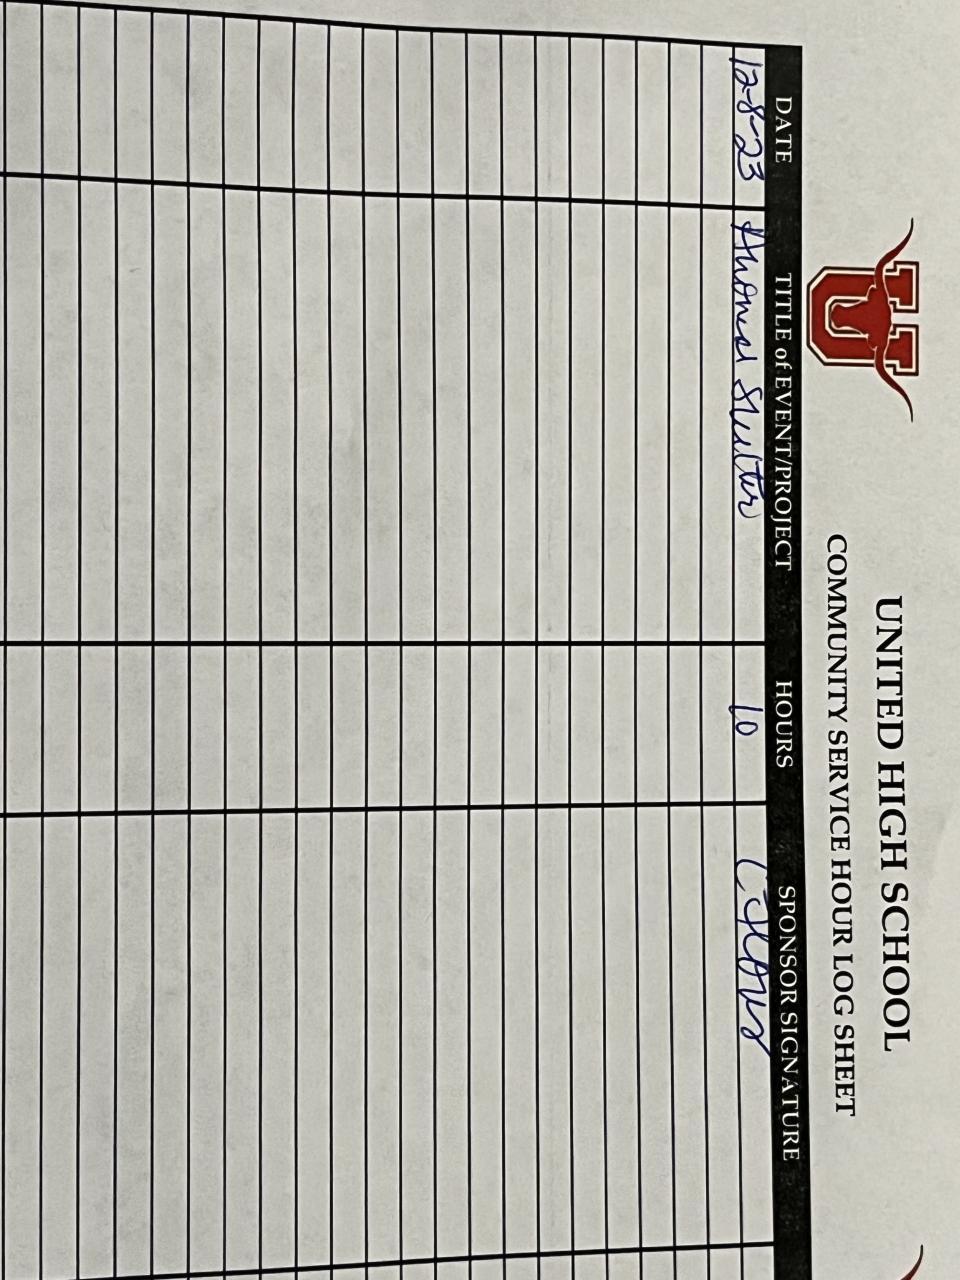 U
UNITED HIGH SCHOOL
COMMUNITY SERVICE HOUR LOG SHEET
DATE TITLE of EVENT/PROJECT HOURS SPONSOR SIGNATURE
12-8-23 Animal Shelter 10